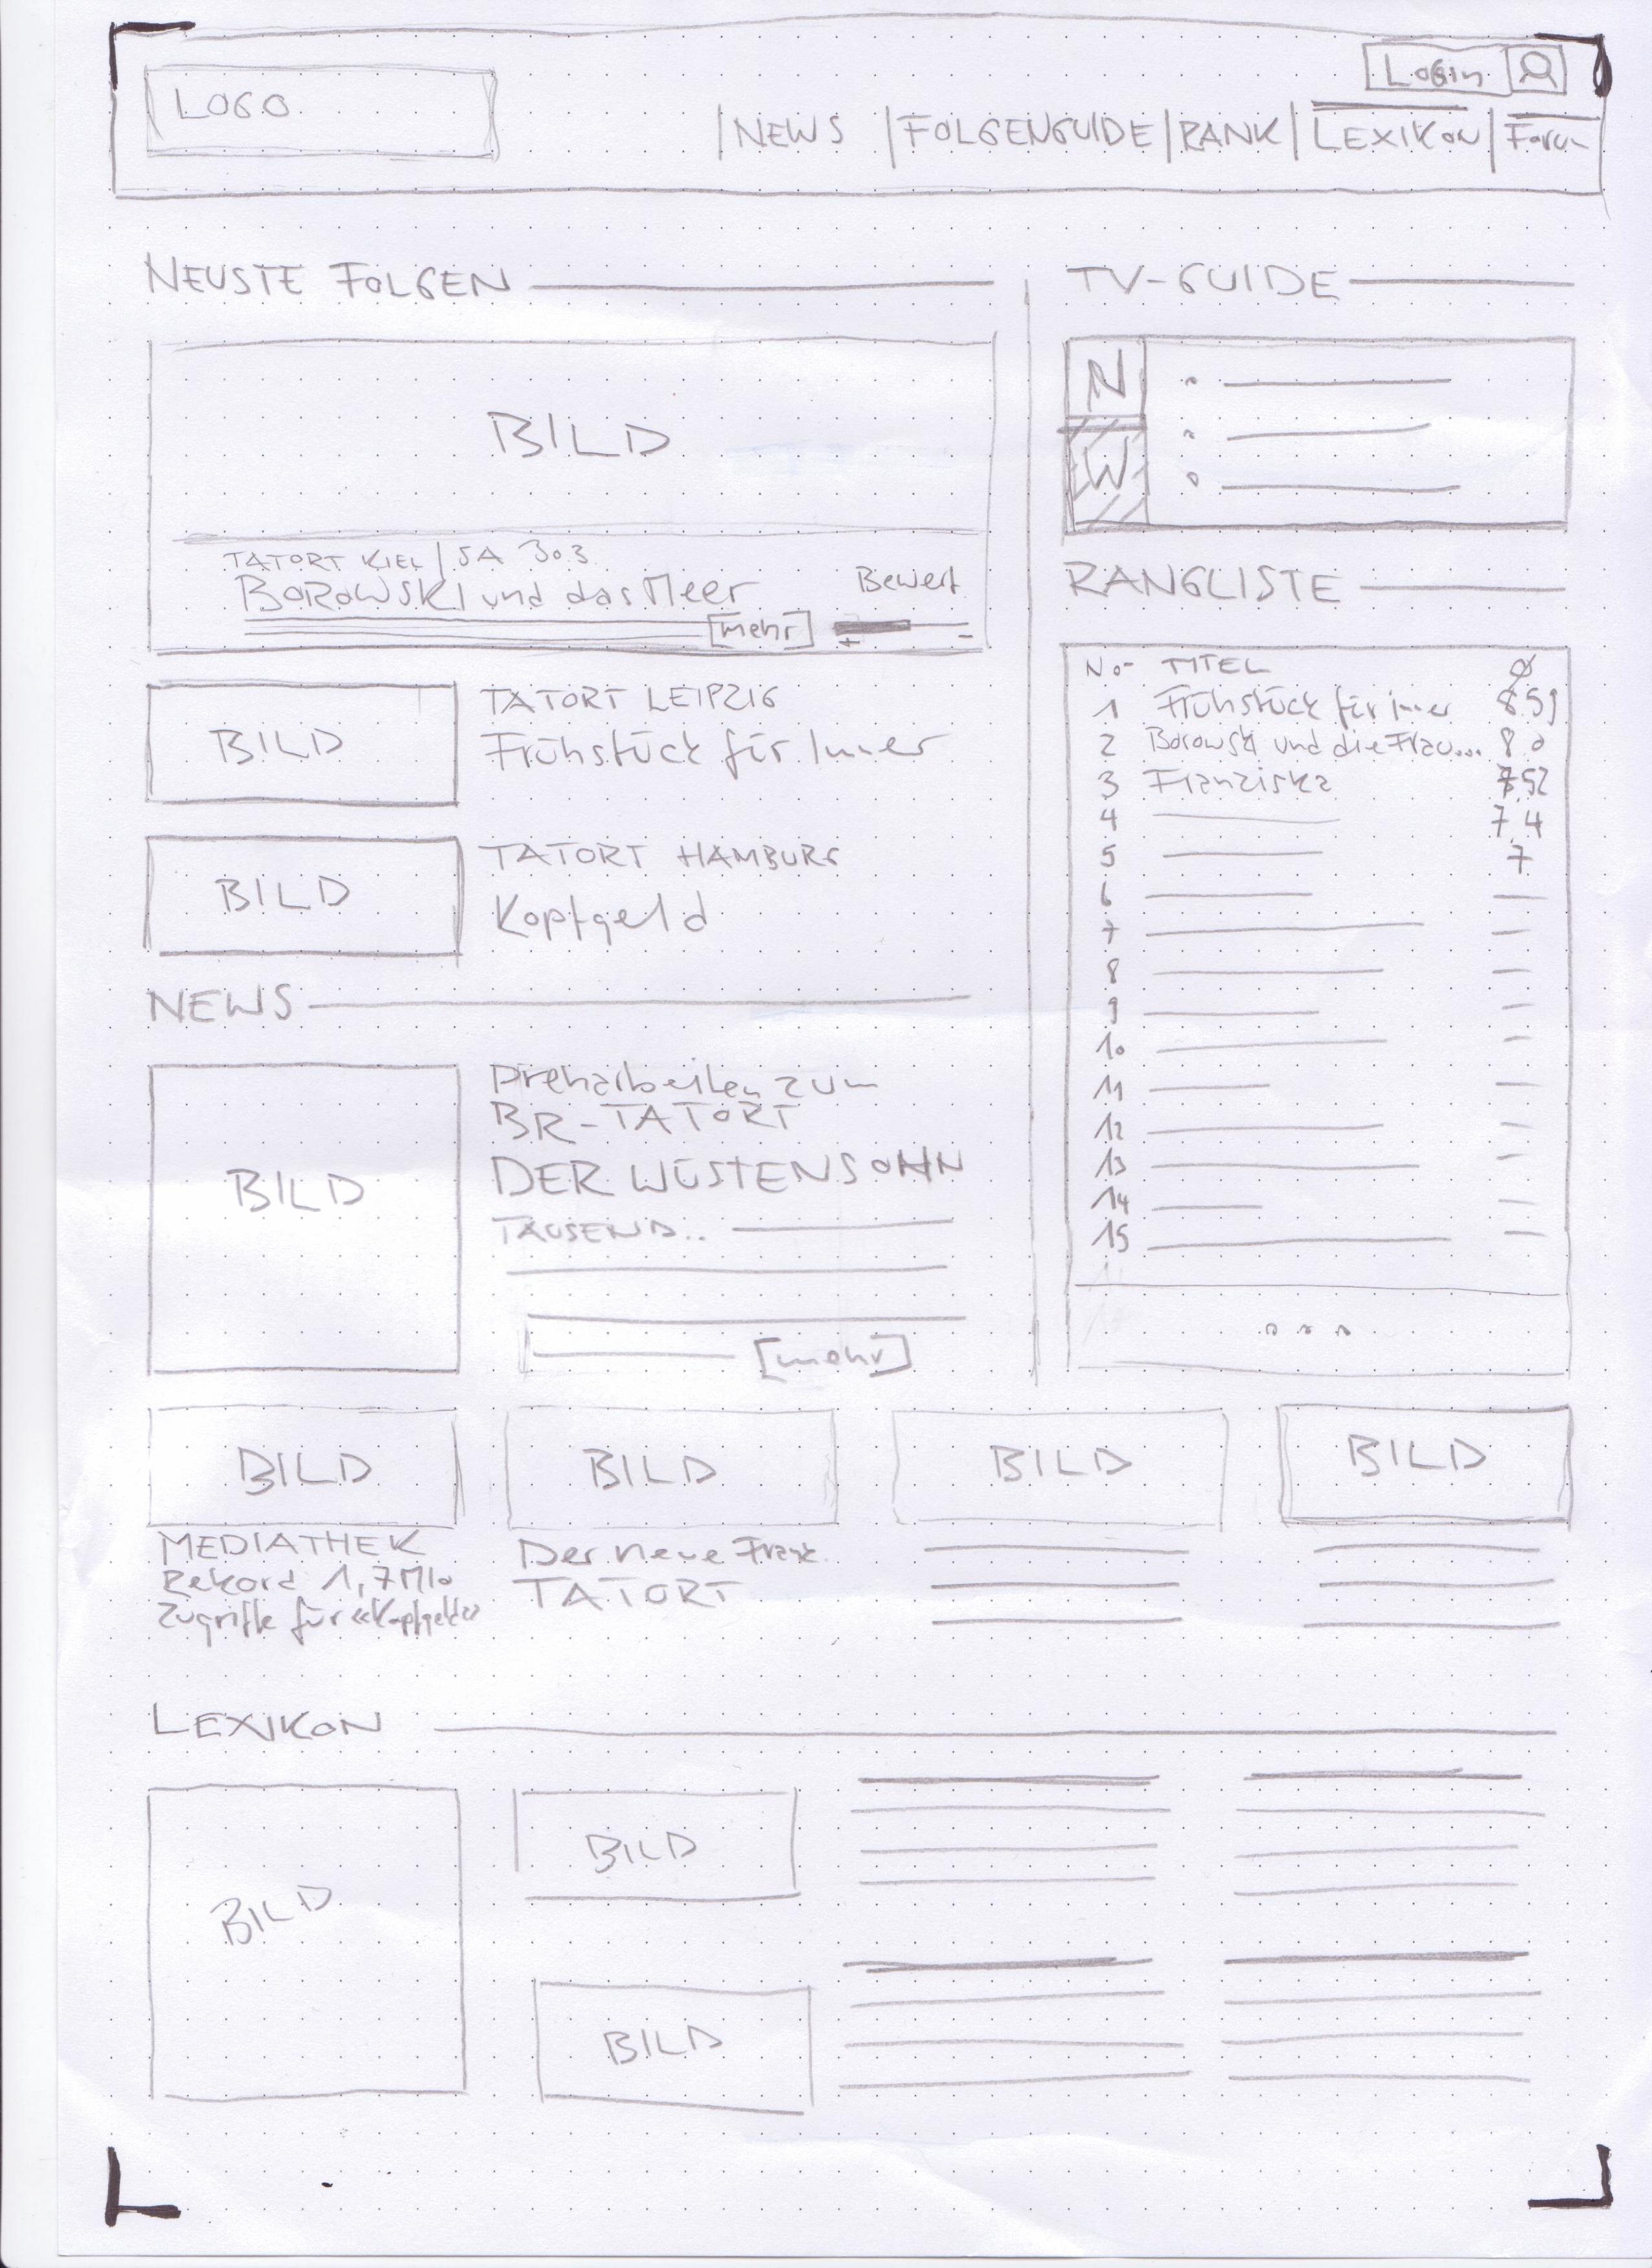 LOGO
Login
NEWS | FOLGENGUIDE | RANK | LEXIKON | Forum
NEUSTE FOLGEN
BILD
TATORT KIEL | SA 30.3
BOROWSKI und das Meer
[mehr]
Bewert
+ -
BILD
TATORT LEIPZIG
Frühstück für Immer
BILD
TATORT HAMBURG
Kopfgeld
NEWS
BILD
Dreharbeiten zum
BR-TATORT
DER WÜSTENSOHN
TAUSEND..
[mehr]
TV-GUIDE
N
W
RANGLISTE
No- TITEL Ø
1 Frühstück für immer 8.59
2 Borowski und die Frau... 8.0
3 Franziska 7.52
4 7.4
5 7
6
7
8
9
10
11
12
13
14
15
...
BILD
MEDIATHEK
Rekord 1,7 Mio
Zugriffe für «Kopfgeld»
BILD
Der neue Frank.
TATORT
BILD
BILD
LEXIKON
BILD
BILD
BILD